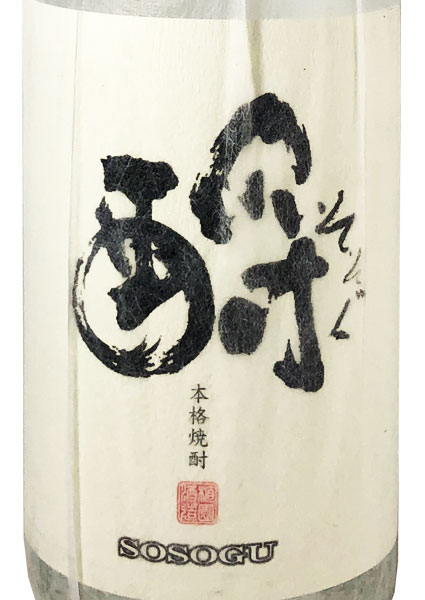 酹
そそぐ
本格焼酎
SOSOGU